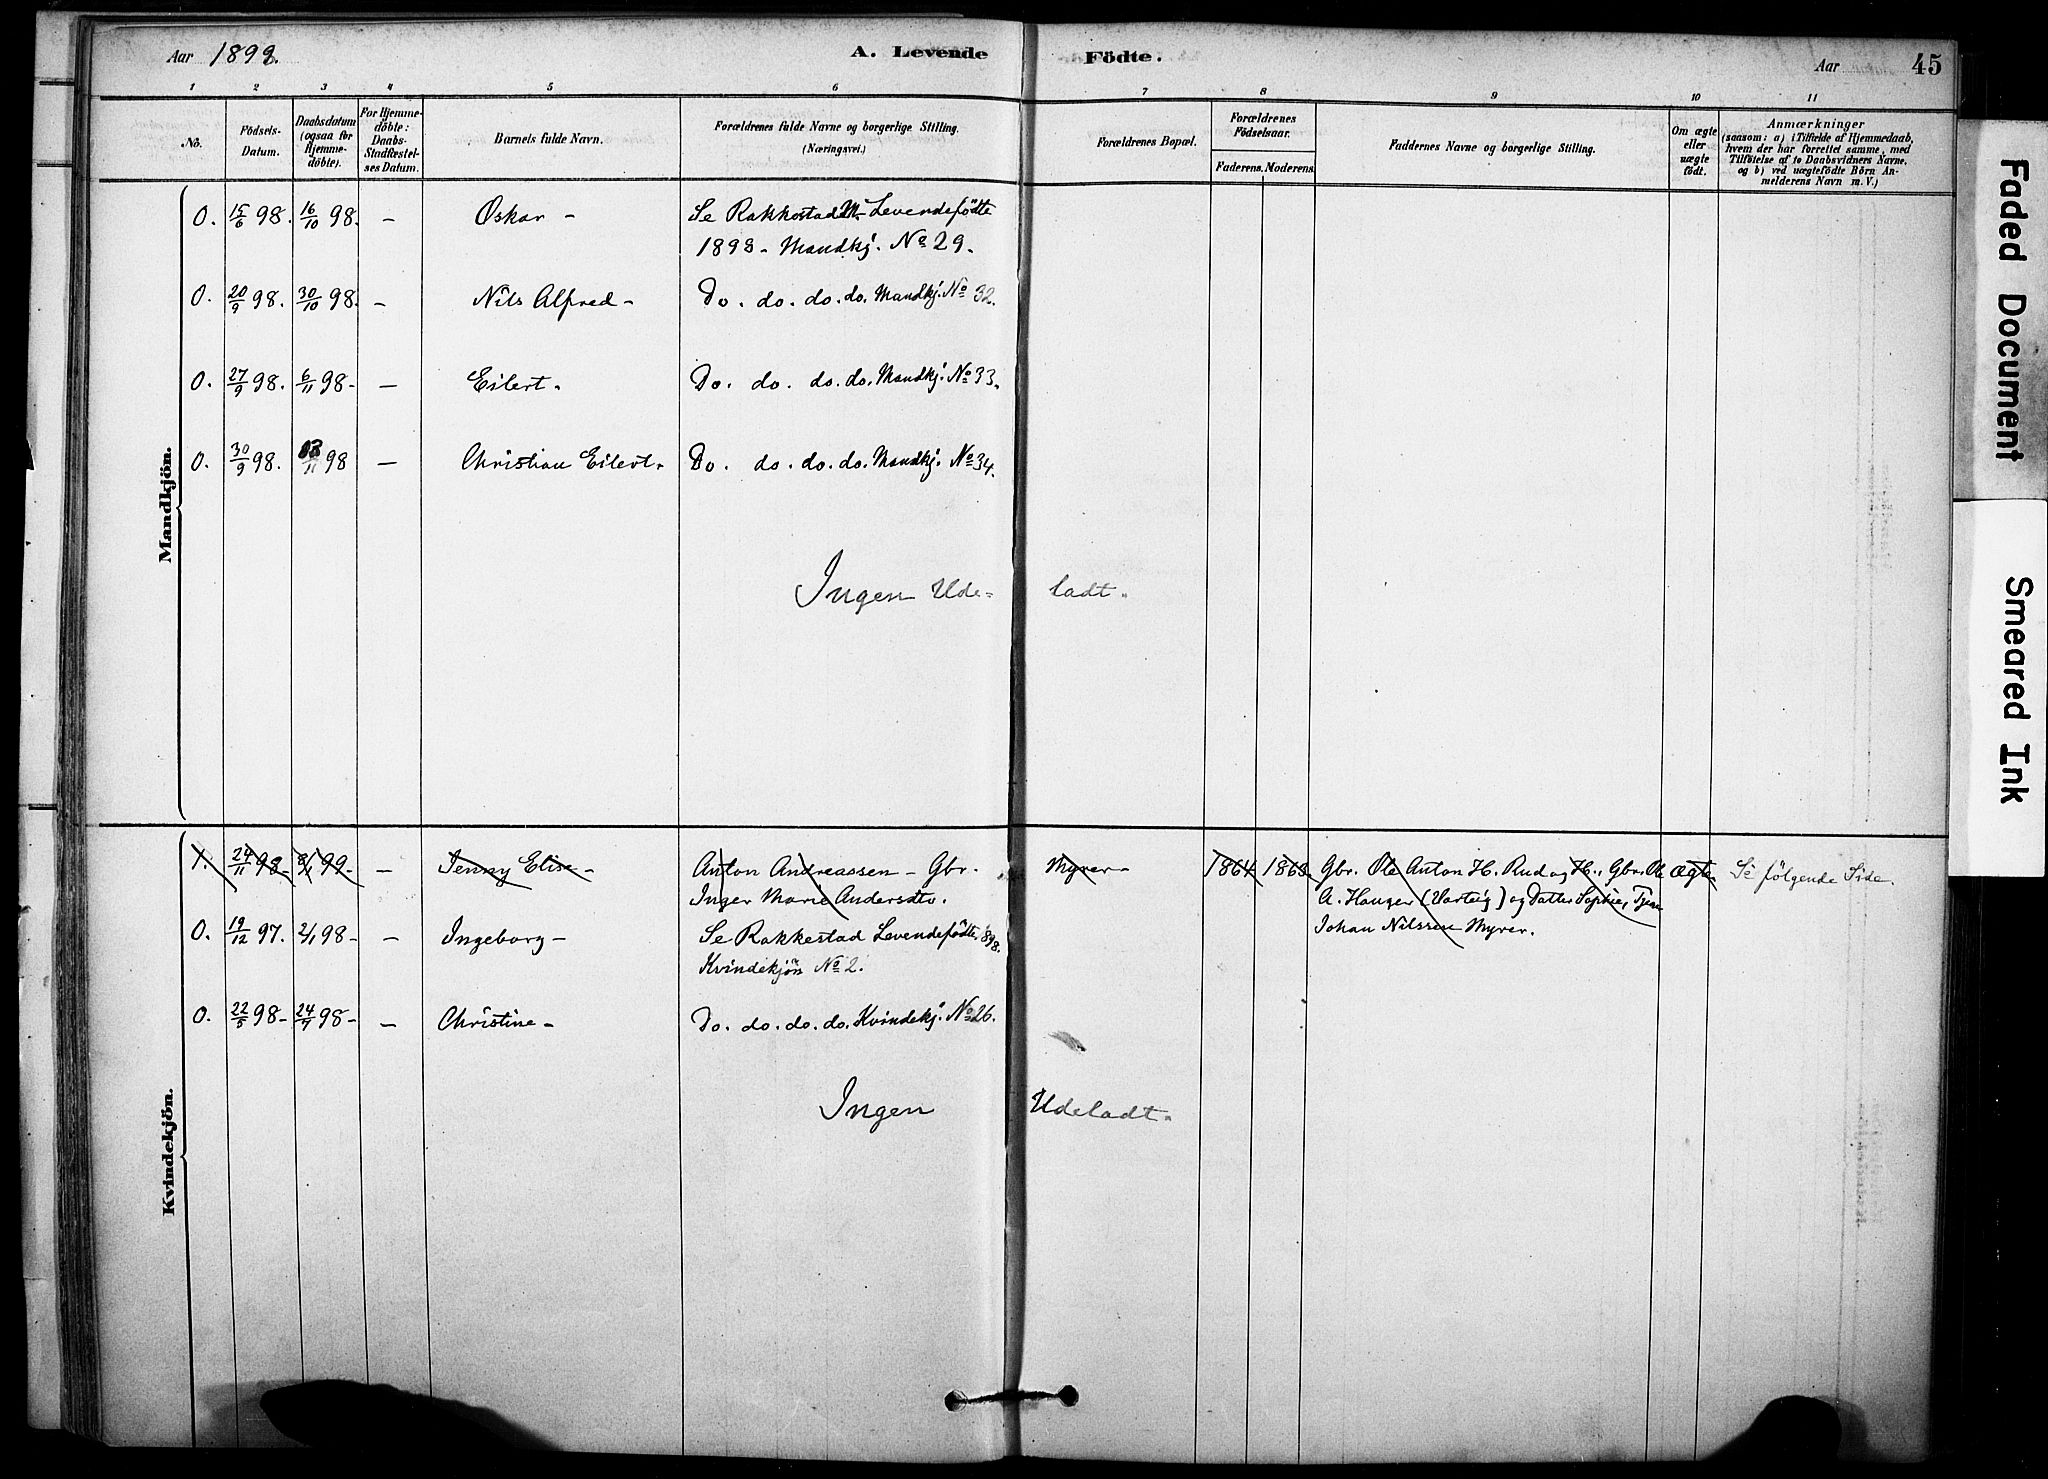 Aar 1898.
A. Levende Födte.
Aar 45
1 2 3 4 5 6 7 8 9 10 11
No.
Födsels-
Datum.
Daabsdatum
(ogsaa for
Hjemme-
döbte).
For Hjemme-
döbte:
Daabs-
Stadfæstel-
ses Datum.
Barnets fulde Navn.
Forældrenes fulde Navne og borgerlige Stilling.
(Næringsvei.)
Forældrenes Bopæl.
Forældrenes
Födselsaar.
Faderens. Moderens.
Faddernes Navne og borgerlige Stilling.
Om ægte
eller
uægte
födt.
Anmærkninger
(saasom: a) i Tilfælde af Hjemmedaab,
hvem der har forrettet samme, med
Tilföielse af to Daabsvidners Navne,
og b) ved uægtefödte Börn An-
melderens Navn m. V.)
Mandkjön.
0. 15/6 98. 16/10 98. – Oskar – Se Rakkestad M. Levendefödte
1898 – Mandkj. No 29.
0. 20/9 98. 30/10 98. – Nils Alfred – Do. do. do. do. Mandkj. No 32.
0. 27/9 98. 6/11 98 – – Eilert. Do. do. do. do. Mandkj. No 33.
0. 30/9 98. 13/11 98 – Christian Eilert. Do. do. do. do. Mandkj. No 34.
Ingen Ude- ladt.
Kvindekjön.
1. 24/11 98. 8/1 99. – Jenny Elise – Anton Andreassen – Gbr. Myrer – 1864 1863. Gbr. Ole Anton H. Rud og H., Gbr. Ole Ægte. Se fölgende Side.
Inger Marie Andersdtr. A. Hauger (Varteig) og Datter Sophie, Tjen.
Johan Nilssen Myrer.
0. 19/12 97. 2/1 98 – – Ingeborg – Se Rakkestad Levendefödte 898.
Kvindekjön No 2.
0. 22/5 98 – 24/7 98 – – Christine – Do. do. do. do. Kvindekj. No 26.
Ingen Udeladt.
Faded Document
Smeared Ink